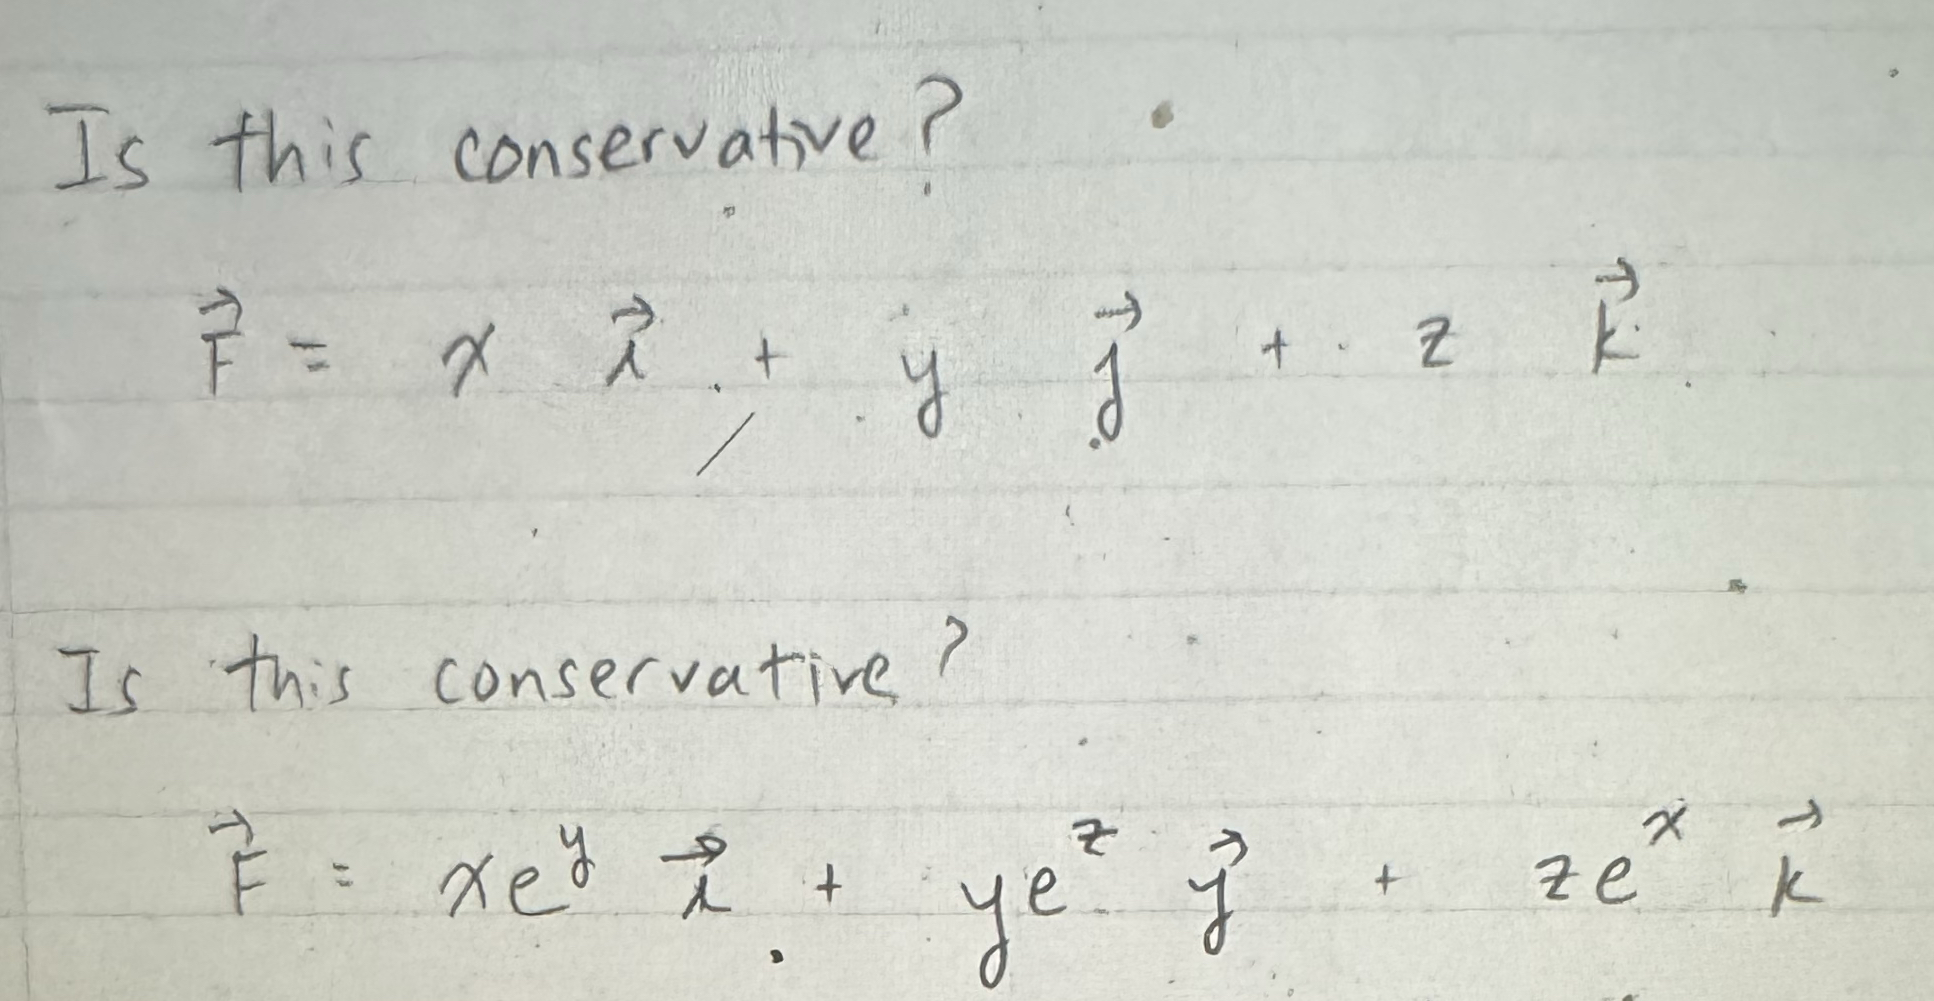 Is this conservative?
F⃗ = x i⃗ + y j⃗ + z k⃗
Is this conservative?
F⃗ = xe^y i⃗ + ye^z j⃗ + ze^x k⃗